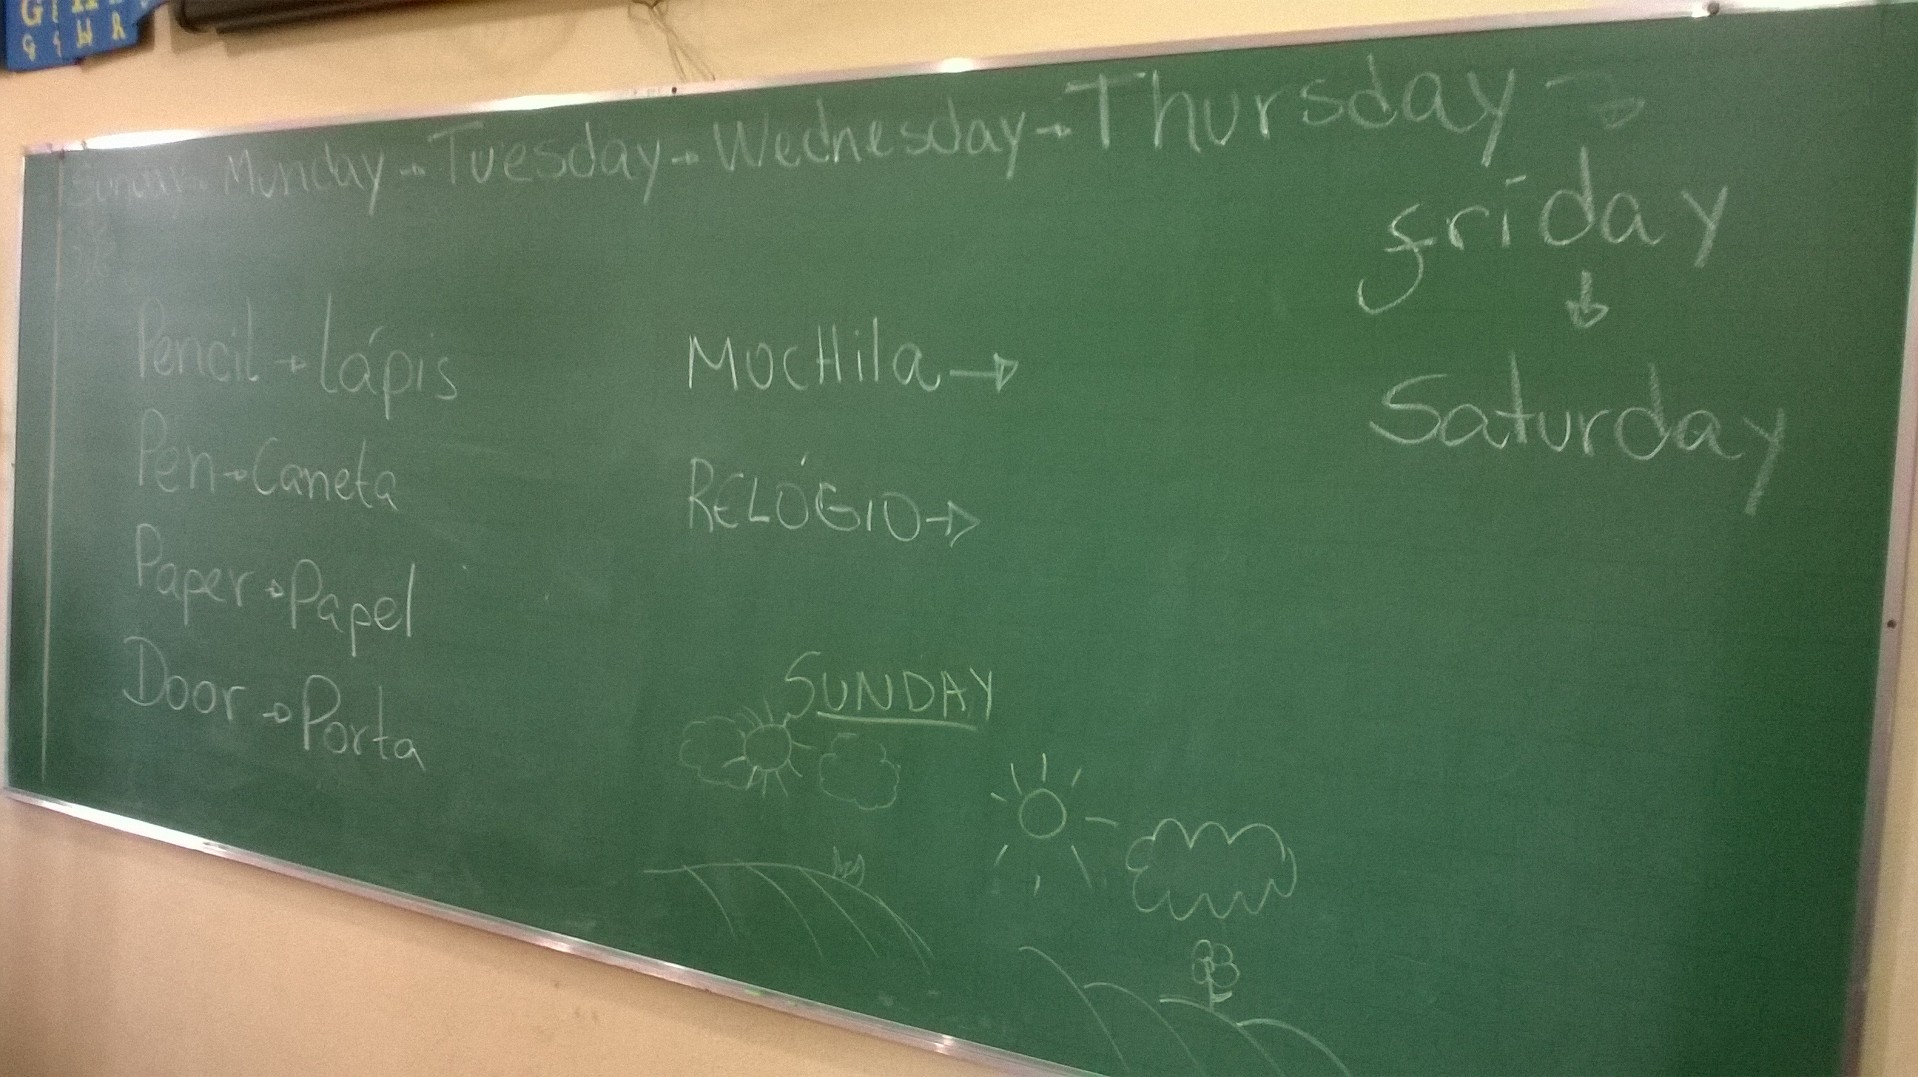 Sunday → Munday → Tuesday → Wednesday → Thursday →
friday
↓
Saturday
Pencil → Lápis
Pen → Caneta
Paper → Papel
Door → Porta
MOCHila →
RELÓGIO →
SUNDAY